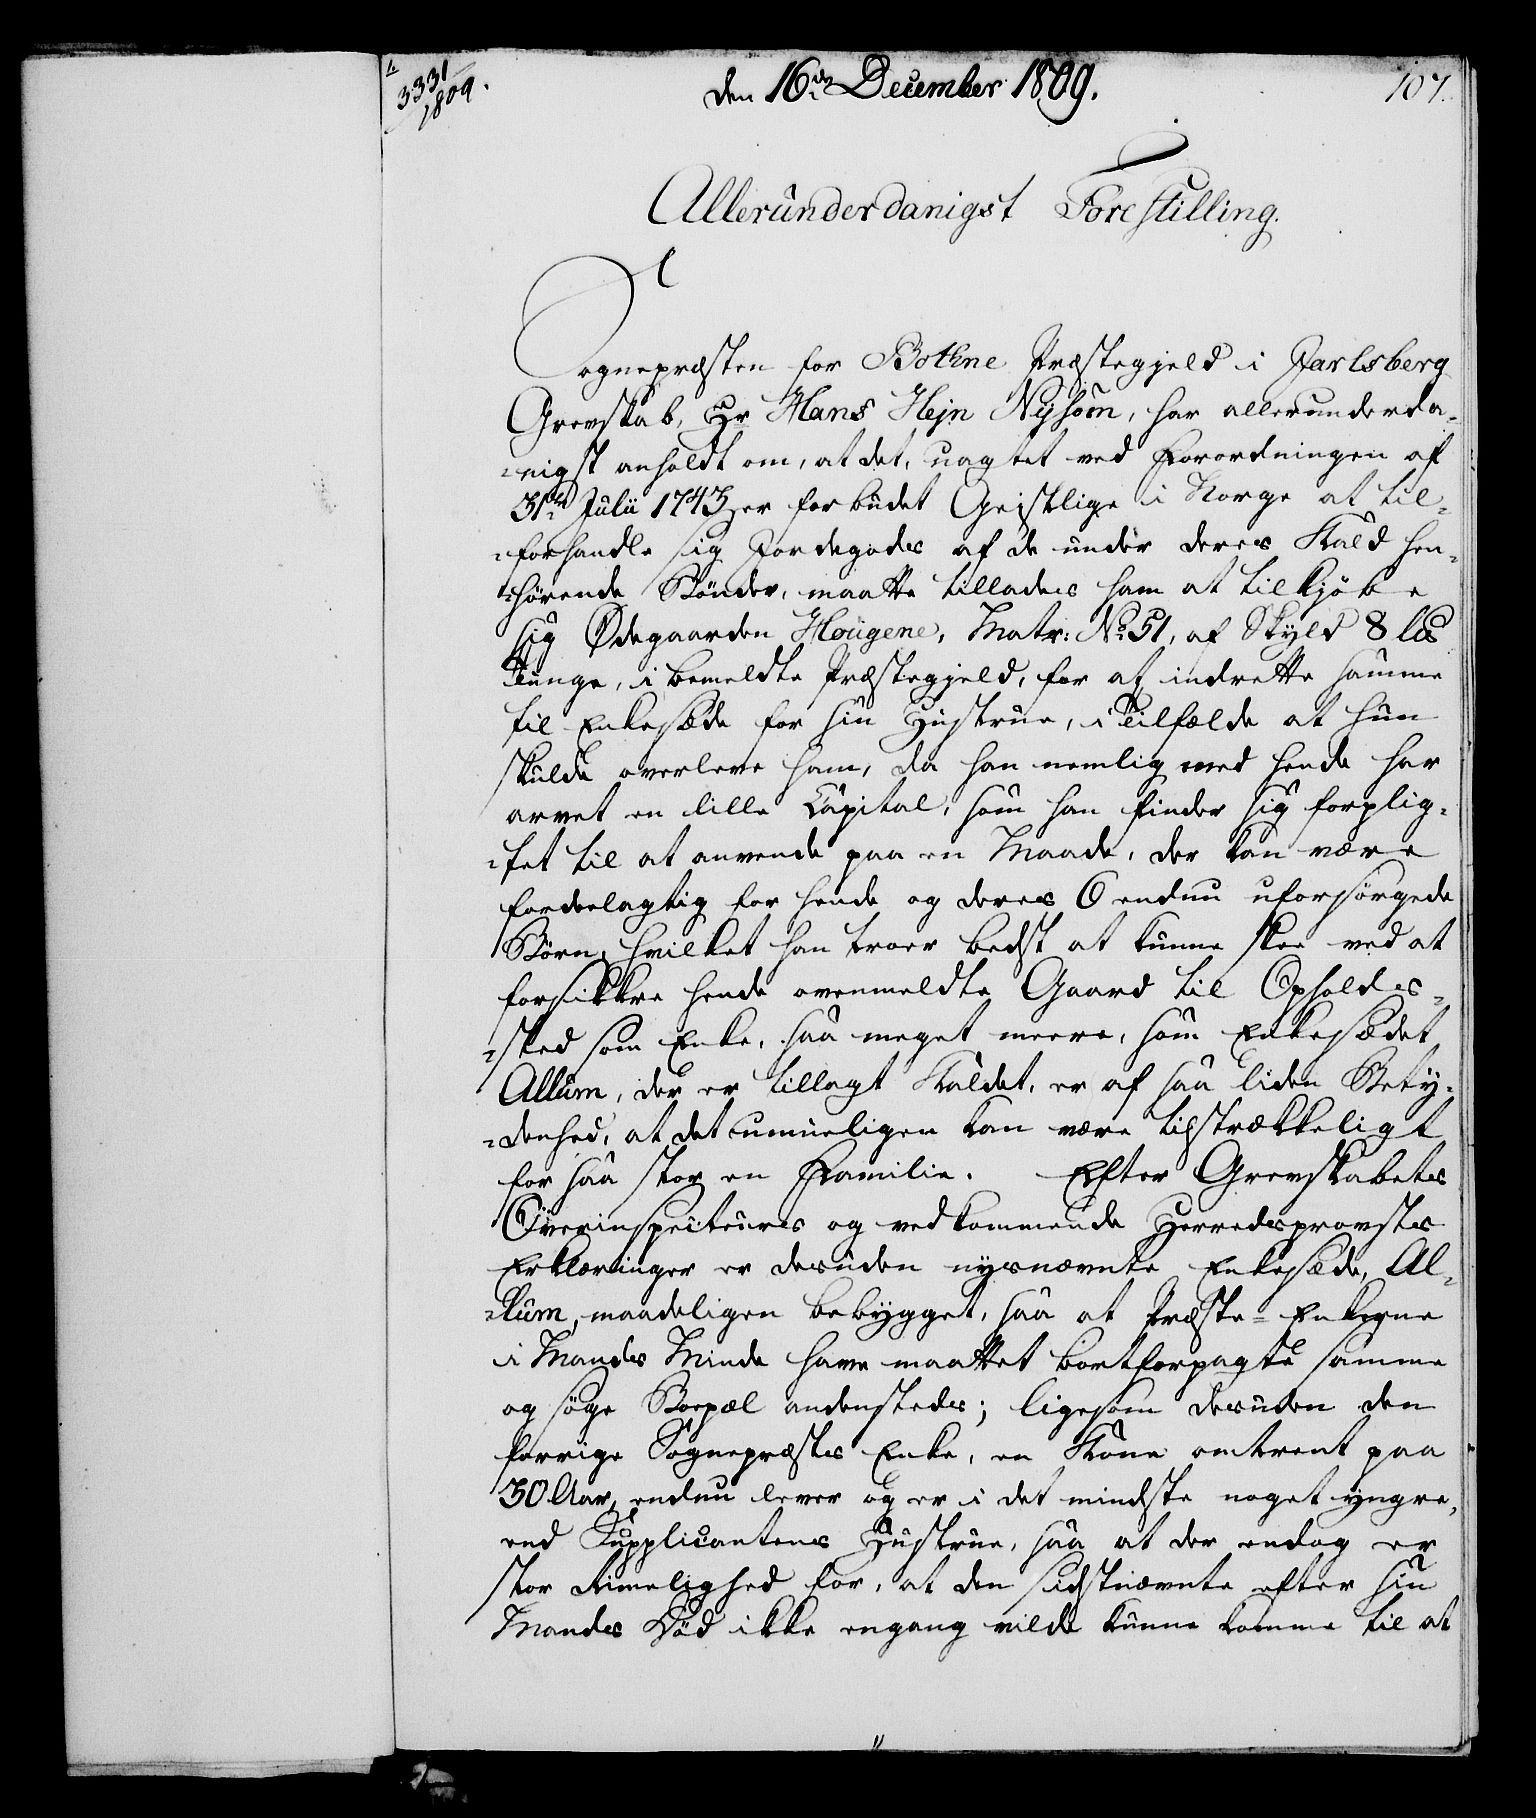 3331/1809.
den 16de December 1809.
107.
Allerunderdanigst Forestilling.
Sognepræsten for Bothne Præstegjeld i Jarlsberg
Grevskab, Hr Hans Hejn Nysom, har allerunderda-
-nigst anholdt om, at det, uagtet ved Forordningen af
31te Julii 1743 er forbudet Geistlige i Norge at til-
-forhandle sig Jordegods af de under deres Kald hen-
-hørende Bønder, maatte tillades ham at tilkjøbe
sig Ødegaarden Hougene, Matr: No 51, af Skyld 8 l℔
Tunge, i bemeldte Præstegjeld, for at indrette samme
til Enkesæde for sin Hustrue, i Tilfælde at hun
skulde overleve ham, da han nemlig med hende har
arvet en lille Capital, som han finder sig forplig-
-tet til at anvende paa en Maade, der kan være
fordeelagtig for hende og deres 6 endnu uforsørgede
Børn, hvilket han troer bedst at kunne skee ved at
forsikkre hende ovenmeldte Gaard til Opholds-
-sted som Enke, saa meget meere, som Enkesædet
Allum, der er tillagt Kaldet, er af saa liden Bety-
-denhed, at det umueligen kan være tilstrækkeligt
for saa stor en Familie. Efter Grevskabets
Overinspecteurs og vedkommende Herredsprovstes
Erklæringer er desuden nysnævnte Enkesæde, Al-
-lum, maadeligen bebygget, saa at Præste-Enkerne
i Mands Minde have maattet bortforpagte samme
og søge Boepæl andenstedes; ligesom desuden den
forrige Sognepræstes Enke, en Kone omtrent paa
30 Aar, endnu lever og er i det mindste noget yngre,
end Supplicantens Hustrue, saa at der endog er
stor Rimelighed for, at den sidstnævnte efter sin
Mands Død ikke engang vilde kunne komme til at